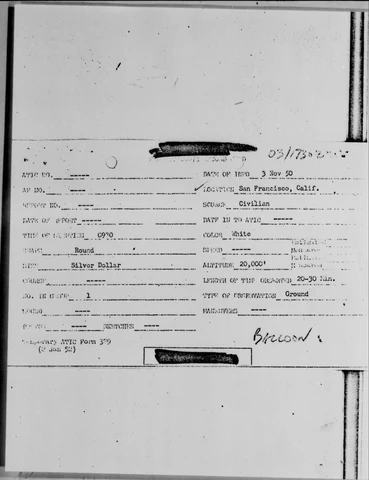 03/1730Z
ATIC NO. ----- DATE OF INFO 3 Nov 50
AF NO. ---- LOCATION San Francisco, Calif.
REPORT NO. ---- SOURCE Civilian
DATE OF REPORT ----- DATE IN TO ATIC -----
TIME OF SIGHTING 0930 COLOR White
SHAPE Round SPEED -----
SIZE Silver Dollar ALTITUDE 20,000'
COURSE ---- LENGTH OF TIME OBSERVED 20-30 Min.
NO. IN GROUP 1 TYPE OF OBSERVATION Ground
SOUND ---- MANEUVERS ----
PHOTOS ---- SKETCHES ----
Temporary ATIC Form 329
(2 Jan 52)
BALLOON